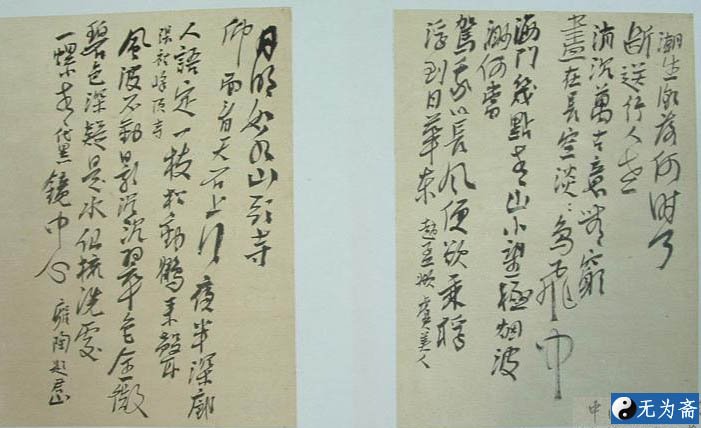 潮生潮落何時了
斷送行人老
消沉萬古意無窮
盡在長空淡淡鳥飛中
海門幾點青山小望極烟波
渺何當
駕我以長風便欲乘桴
浮到日華東 趙孟頫 虞美人
月明如水山頭寺
仰面看天石上行 夜半深廊
人語定一枝松動鶴來聲
張祜峰頂寺
風波不動影沉沉翠色全微
碧色深疑是水仙梳洗處
一螺青黛鏡中心 雍陶題君山
中
无为斋